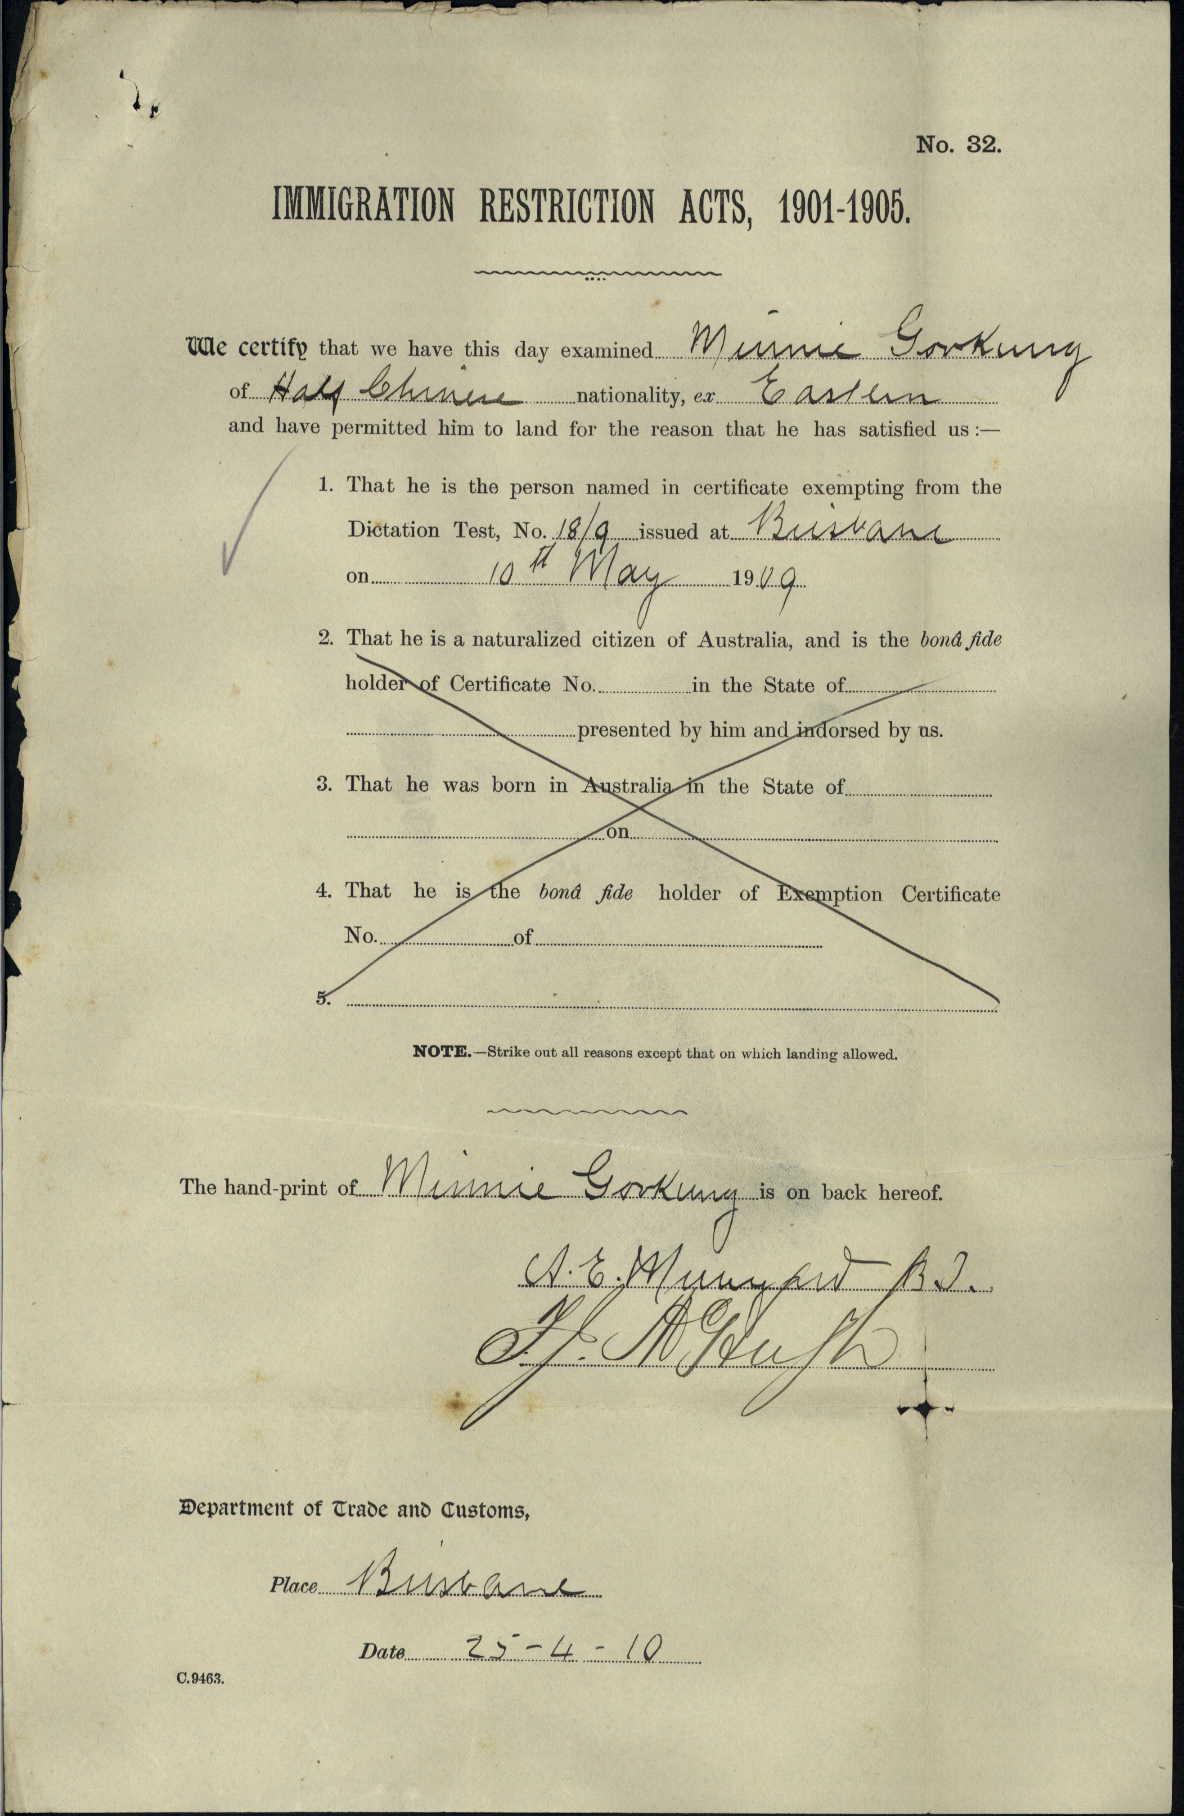 No. 32.
IMMIGRATION RESTRICTION ACTS, 1901-1905.
We certify that we have this day examined Minnie Gorkung
of Half Chinese nationality, ex Eastern
and have permitted him to land for the reason that he has satisfied us :—
1. That he is the person named in certificate exempting from the
Dictation Test, No. 18/9 issued at Brisbane
on 10th May 1909
2. That he is a naturalized citizen of Australia, and is the bonâ fide
holder of Certificate No. in the State of
presented by him and indorsed by us.
3. That he was born in Australia in the State of
on
4. That he is the bonâ fide holder of Exemption Certificate
No. of
5.
NOTE.—Strike out all reasons except that on which landing allowed.
The hand-print of Minnie Gorkung is on back hereof.
A. E.
Department of Trade and Customs,
Place Brisbane
Date 25-4-10
C.9463.